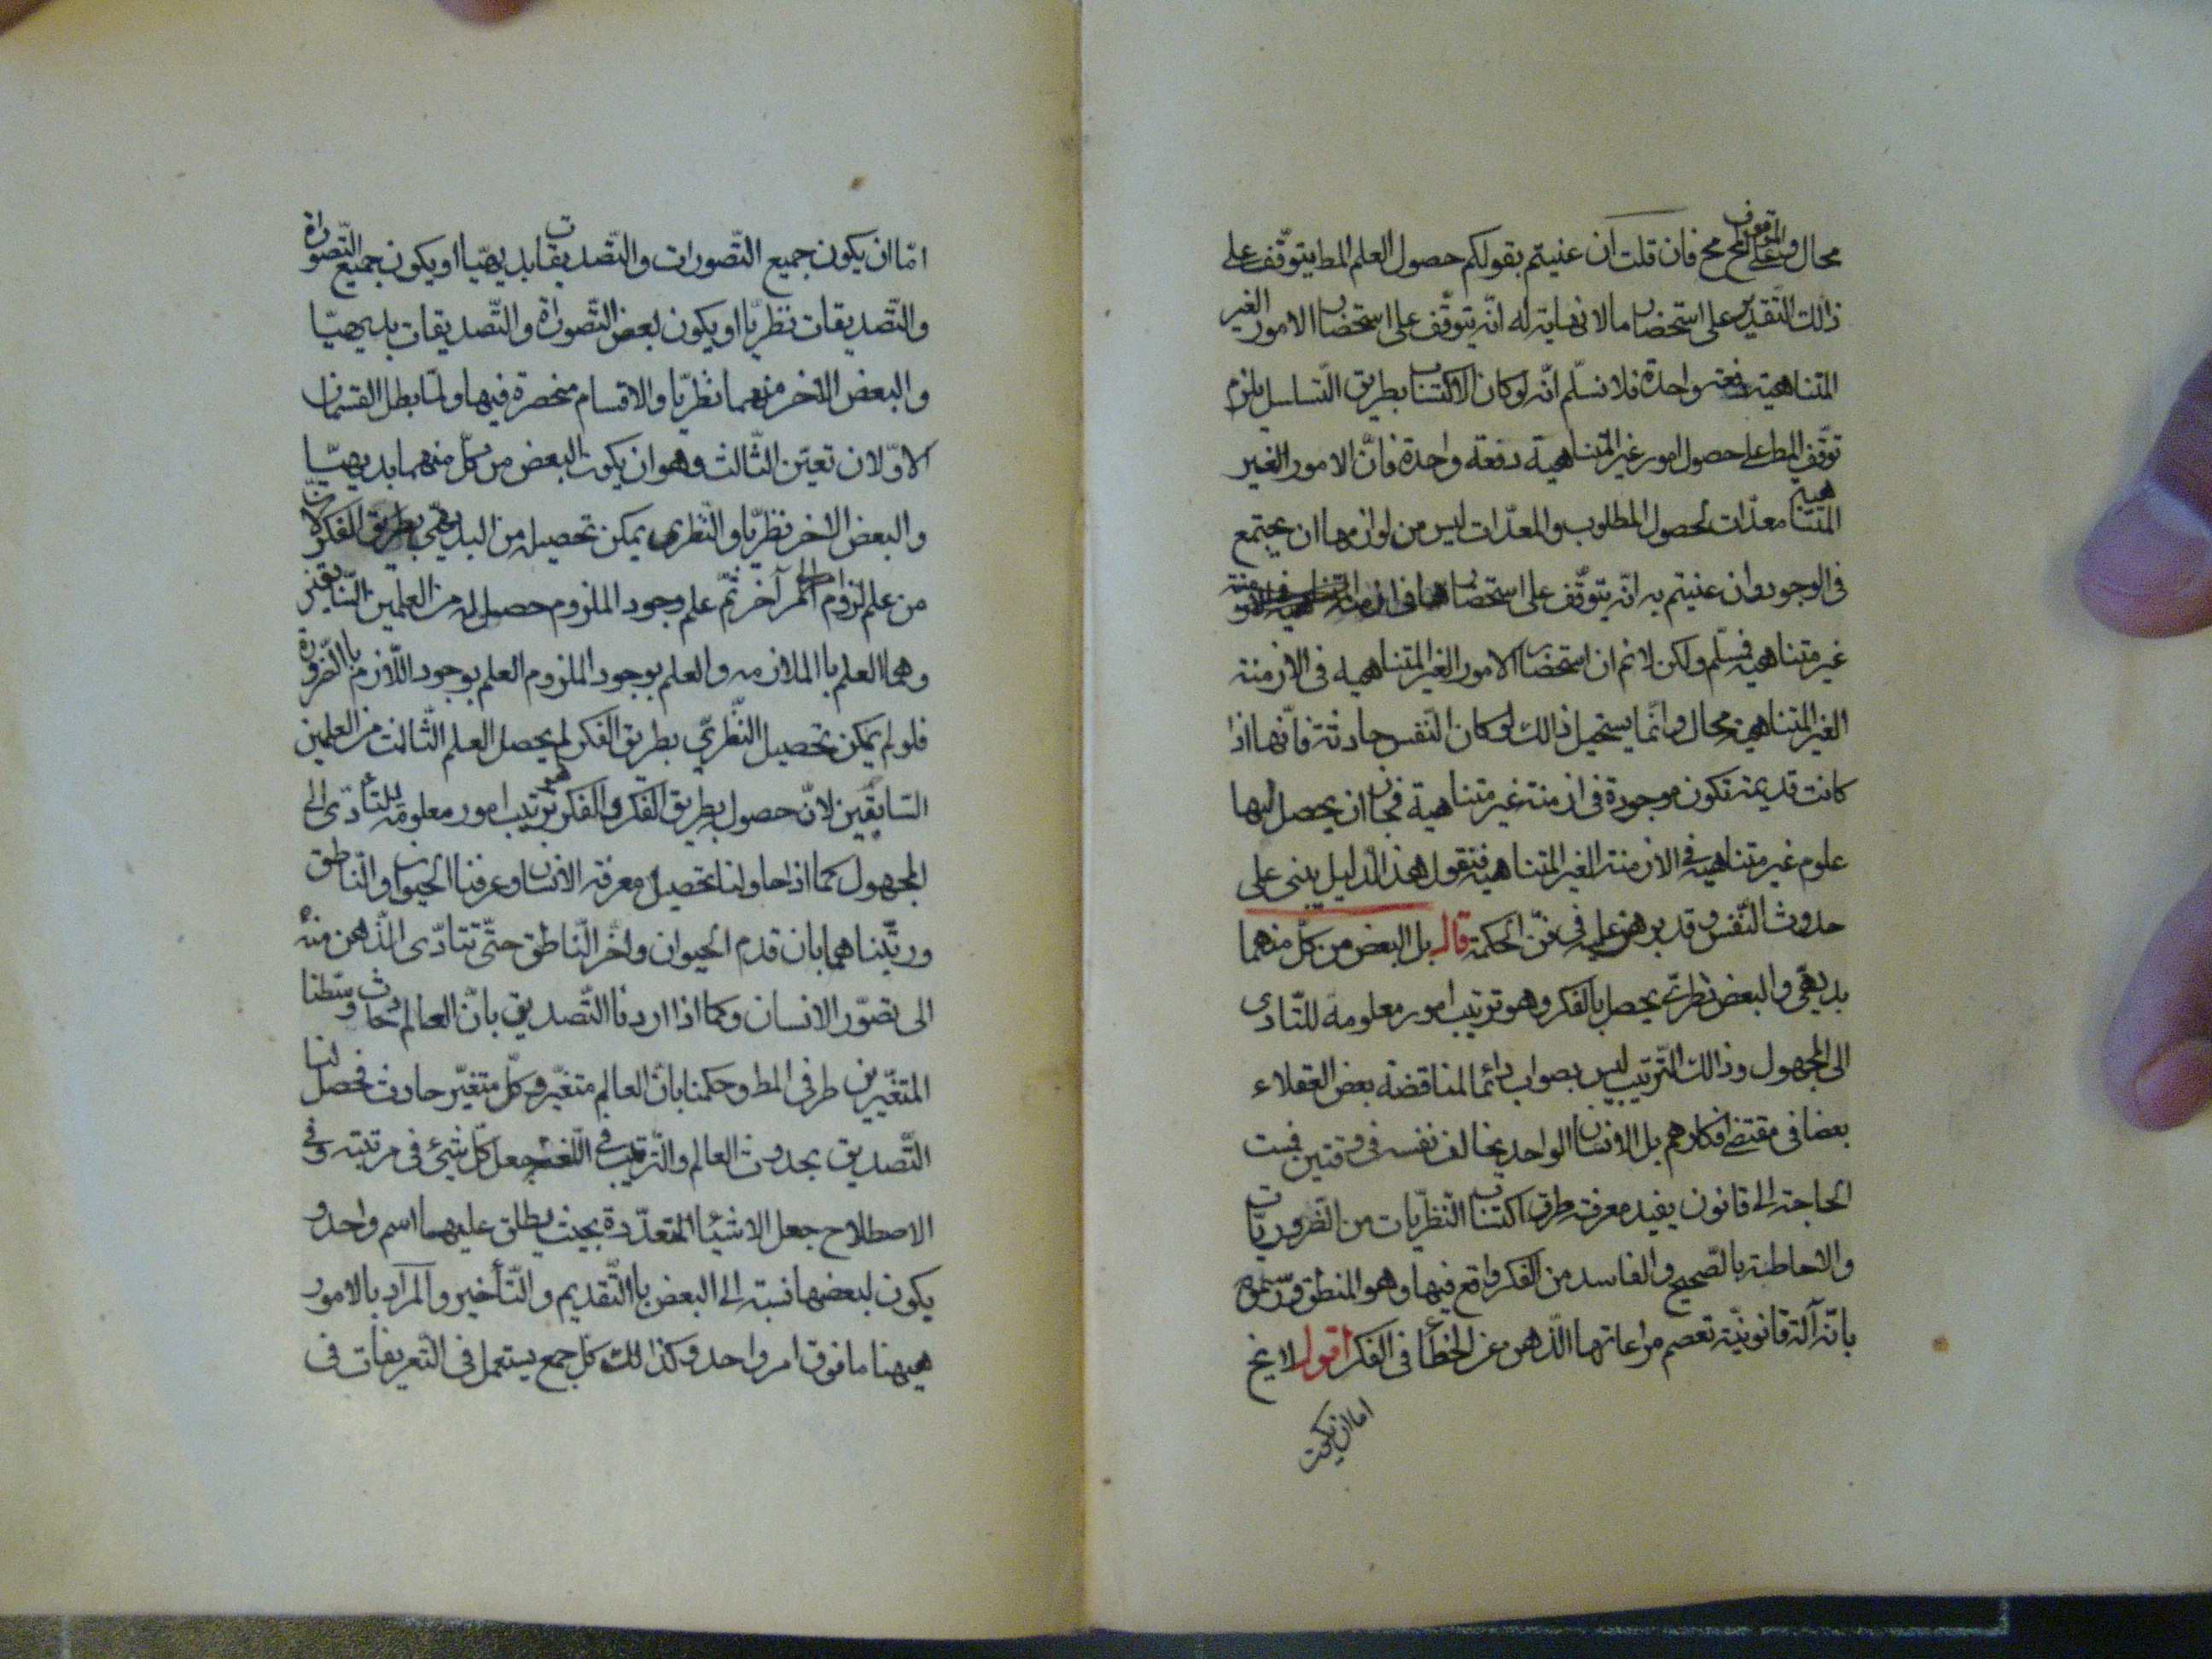 محال والموقوف على المح مح فان قلت ان عنيتم بقولكم حصول العلم المط يتوقف على
ذالك التقدير على استحضار مالا نهاية له انه يتوقف على استحضار الامور الغير
المتناهية دفعة واحدة فلا نسلم انه لو كان الاكتساب بطريق التسلسل يلزم
توقف المط على حصول امور غير المتناهية دفعة واحدة فان الامور الغير
المتناهية معدّات لحصول المطلوب والمعدّات ليس من لوازمها ان يجتمع
فى الوجود وان عنيتم به انه يتوقف على استحضارها فى ازمنة
غير متناهية فمسلّم ولكن لانم ان استحضار الامور الغير المتناهية فى الازمنة
الغير المتناهية محال وانما يستحيل ذالك لو كان النفس حادثة فانها اذا
كانت قديمة تكون موجودة فى ازمنة غير متناهية فجاز ان يحصل لها
علوم غير متناهية فى الازمنة الغير المتناهية فنقول هذا الدليل يبنى على
حدوث النفس وقد برهن عليه فى فنّ الحكمة قال بل البعض من كلّ منهما
بديهىّ والبعض نظرىّ يحصل بالفكر وهو ترتيب امور معلومة للتّادى
الى المجهول وذالك الترتيب ليس بصواب دائما لمناقضة بعض العقلاء
بعضا فى مقتضى افكارهم بل الانسان الواحد يخالف نفسه فى وقتين فمست
الحاجة الى قانون يفيد معرفة طرق اكتساب النظريّات من الضّروريّات
والاحاطة بالصّحيح والفاسد من الفكر واقع فيها وهو المنطق ورسموه
بانه آلة قانونيّة تعصم مراعاتها الذّهن عن الخطأ فى الفكر اقول لا يخ
اما ان يكون
امّا ان يكون جميع التّصورات والتّصديقات بديهيّا او يكون جميع التّصوراة
والتّصديقات نظريّا او يكون بعض التّصوراة والتّصديقات بديهيّا
والبعض الاخر منهما نظريّا والاقسام منحصرة فيها ولمّا بطل القسمان
الاوّلان تعيّن الثّالث وهو ان يكون البعض من كلّ منهما بديهيّا
والبعض الاخر نظريّا والنّظرى يمكن تحصيله من البديهىّ بطريق الفكر لانّ
من علم لزوم امر آخر ثمّ علم وجود الملزوم حصل له من العلمين السّابقين
وهما العلم باالملازمه والعلم بوجود الملزوم العلم بوجود اللّازم باالضّرورة
فلو لم يمكن تحصيل النّظرىّ بطريق الفكر لم يحصل العلم الثّالث من العلمين
السّابقين لانّ حصوله بطريق الفكر والفكر هو ترتيب امور معلومة للتأدّى الى
المجهول كما اذا حاولنا تحصيل معرفة الانسان وعرفنا الحيوان والنّاطق
ورتّبناهما بان قدم الحيوان واخّر النّاطق حتّى تتادّى الذّهن منه
الى تصوّر الانسان وكما اذا اردنا التّصديق بانّ العالم حادث وسّطنا
المتغيّر بين طرفى المط وحكمنا بانّ العالم متغيّر وكلّ متغيّر حادث فحصل لنا
التّصديق بحدوث العالم والتّرتيب فى اللّغة جعل كلّ شئ فى مرتبته وفى
الاصطلاح جعل الاشيا المتعدّدة بحيث يطلق عليهما اسم واحد و
يكون لبعضها نسبة الى البعض باالتّقديم والتّأخير والمراد بالامور
هيهنا مافوق امر واحد وكذالك كل جمع يستعمل فى التّعريفات فى